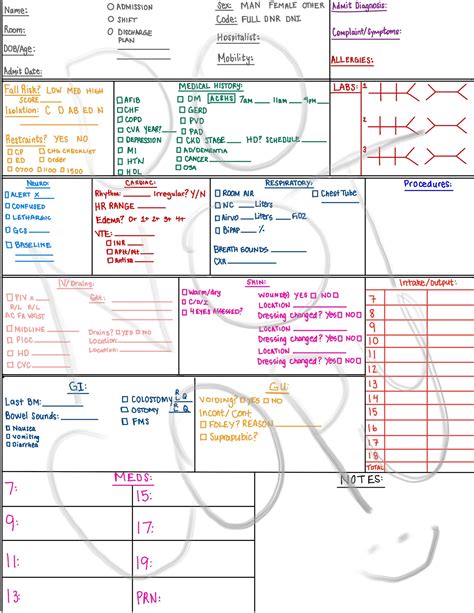 Name: ADMISSION Sex: MAN FEMALE OTHER Admit Diagnosis:
SHIFT Code: FULL DNR DNI
Room: DISCHARGE PLAN Hospitalist: Complaint/Symptoms:
DOB/Age: Mobility:
Admit Date: ALLERGIES:
Fall Risk? LOW MED HIGH
SCORE
Isolation: C D AB ED N
Restraints? YES NO
CP CHG CHECKLIST
RD Order
0700 1100 1500
MEDICAL HISTORY:
AFIB
CHF
COPD
CVA YEAR?
DEPRESSION
MI
HTN
HOL
DM ACEHS 7am 11am 4pm
GERD
PVD
PAD
CKD STAGE HD? SCHEDULE
AD/DEMENTIA
CANCER
OSA
LABS:
1
2
3
NEURO:
ALERT X
CONFUSED
LETHARGIC
GCS
BASELINE
CARDIAC:
Rhythm: Irregular? Y/N
HR RANGE
Edema? 0 1+ 2+ 3+ 4+
VTE:
INR
RESPIRATORY:
ROOM AIR Chest Tube
NC Liters
Airvo Liters FiO2
Bipap %
BREATH SOUNDS
CXR
Procedures:
IV/Drains:
PIV x Gtt:
R/L R/L
AC FA WRIST
MIDLINE
PICC
HD
CVC
Drains? YES NO
Location:
SKIN:
Warm/dry
C/D/I
4 EYES ASSESSED?
WOUND? YES NO
LOCATION
Dressing changed? YES NO
Location
Dressing changed? YES NO
LOCATION
Intake/output:
7
8
9
10
11
12
13
14
15
16
17
18
TOTAL
GI:
Last BM:
Bowel Sounds:
Nausea
Vomiting
Diarrhea
COLOSTOMY
OSTOMY
FMS
GU:
VOIDING? YES NO
Incont/Cont
FOLEY? REASON
Suprapubic?
MEDS:
7: 15:
9: 17:
11: 19:
13: PRN:
NOTES: